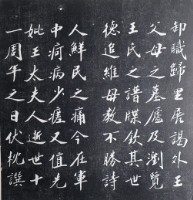 卸職歸里展謁外王
父母之墓廬及瀏覽
王氏之譜牒欽其世
德追維母教不勝詩
人鮮民之痛今在軍
中疴病少瘥又值先
妣王太夫人逝世十
一周年之日伏枕譔